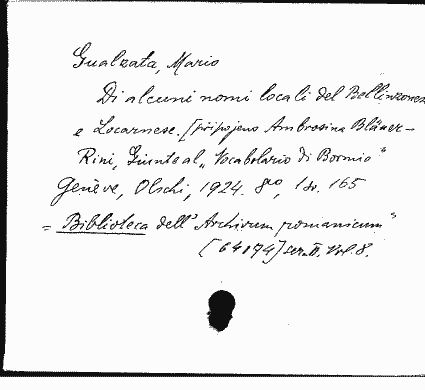 Gualzata, Mario
Di alcuni nomi locali del Bellinzones
e Locarnese. [připojeno Ambrosina Bläuer-
Rini, Giunte al „Vocabolario di Bormio"
Genève, Olschi, 1924. 8vo, 165
= Biblioteca dell' Archivum romanicum"
[64174] ser. II. Vol. 8.